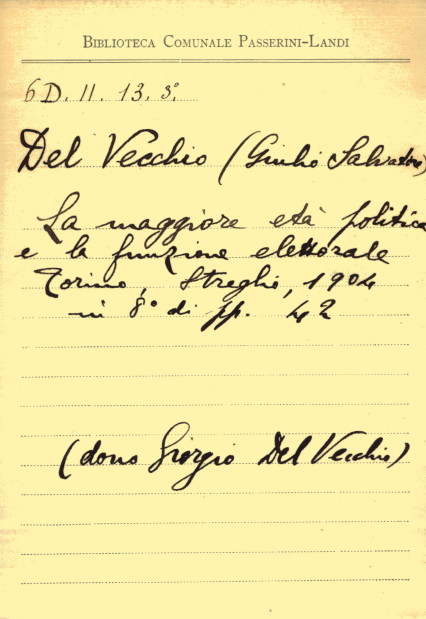 BIBLIOTECA COMUNALE PASSERINI-LANDI
6 D. II. 13. 3°.
Del Vecchio (Giulio Salvatore)
La maggiore età politica
e la funzione elettorale
Torino, Streglio, 1904
in 8° di pp. 42
(dono Giorgio Del Vecchio)